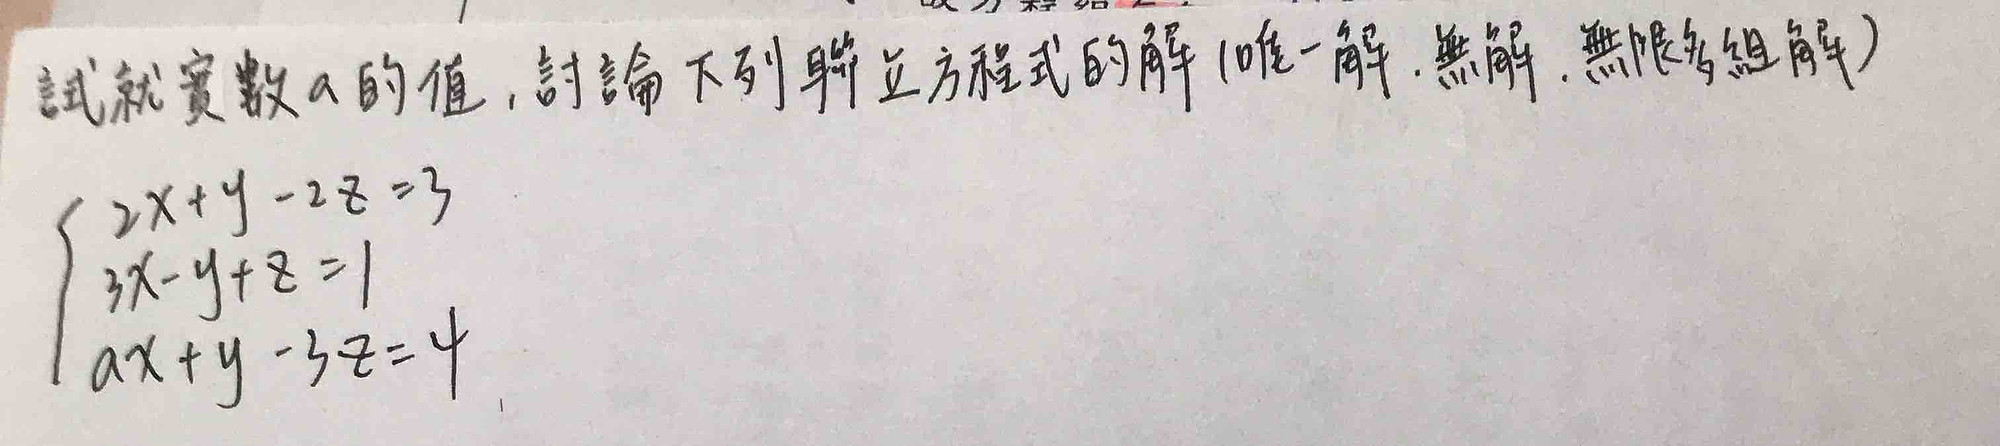 試就實數a的值,討論下列聯立方程式的解(唯一解.無解.無限多組解)
2x+y-2z=3
3x-y+z=1
ax+y-3z=4